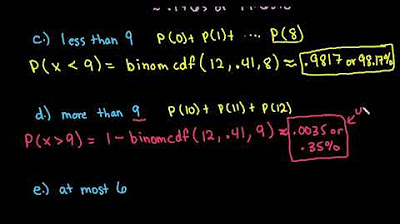 c.) less than 9 P(0)+ P(1)+ .... P(8)
P(x < 9) = binomcdf(12, .41, 8) ≈ .9817 or 98.17%
d.) more than 9 P(10) + P(11) + P(12)
P(x>9) = 1 - binomcdf(12, .41, 9) ≈ .0035 or
.35%
e.) at most 6